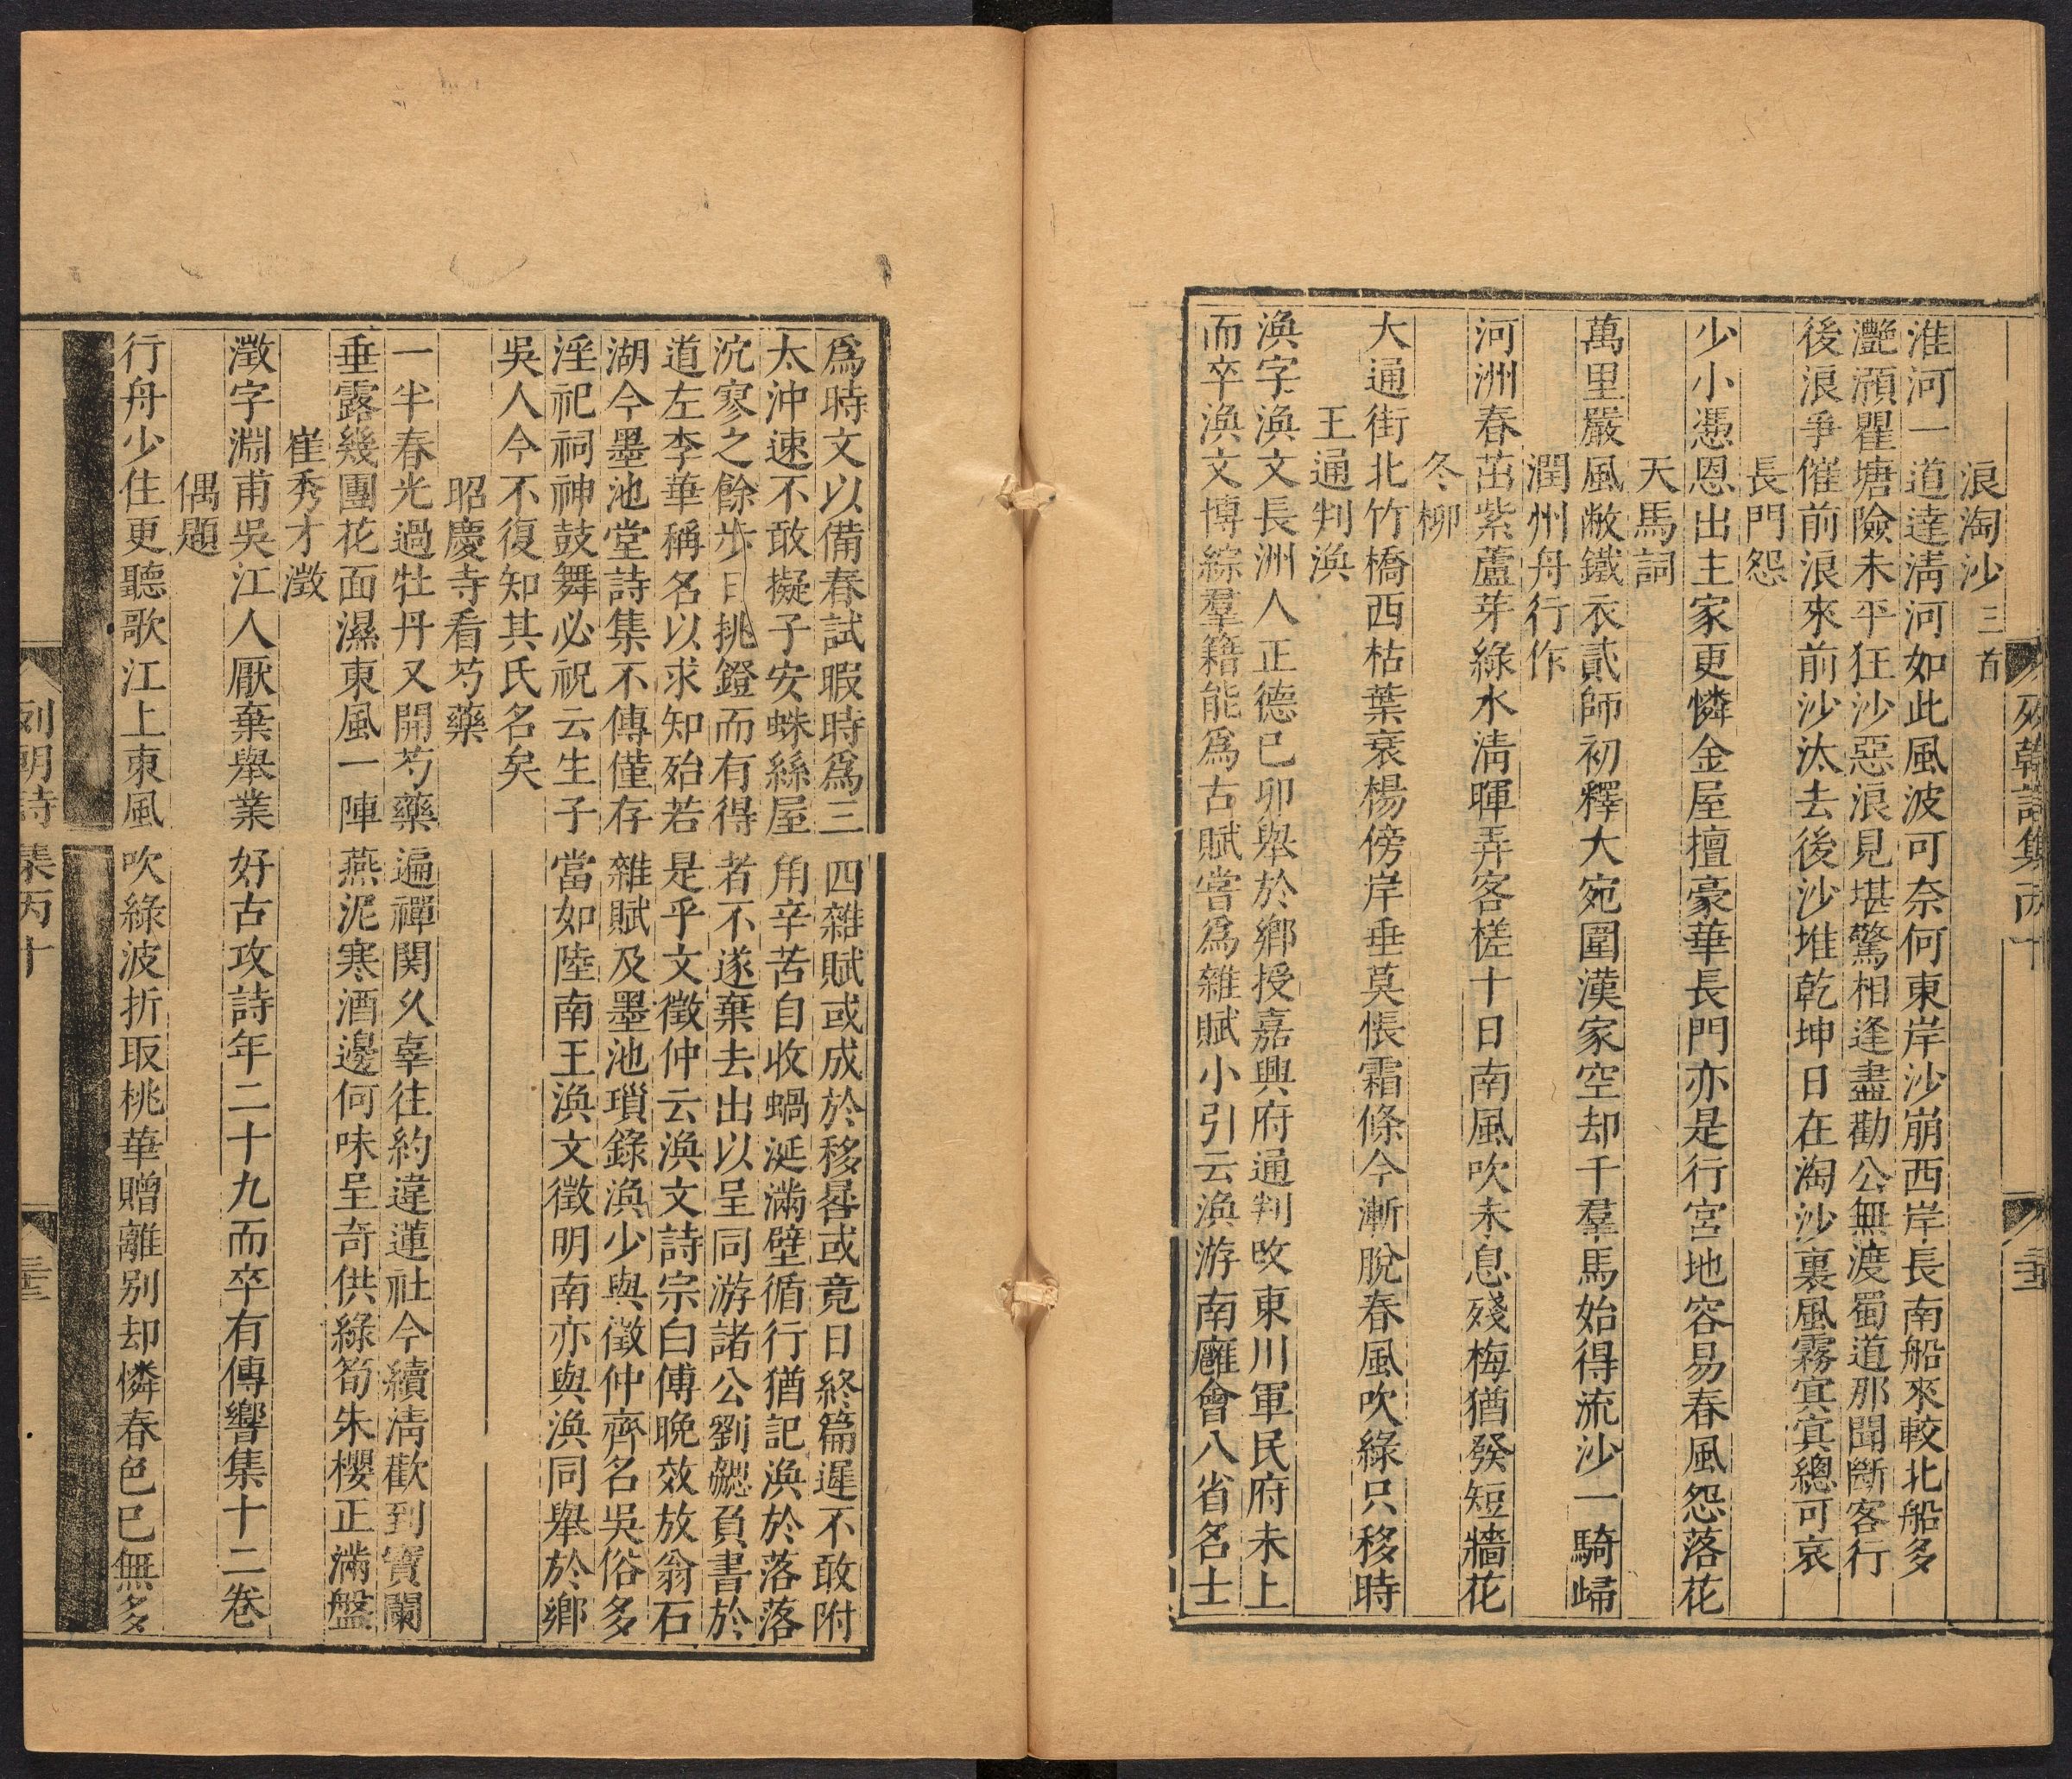 浪淘沙三首
淮河一道達淸河如此風波可奈何東岸沙崩西岸長南船來較北船多
灧澦瞿塘險未平狂沙惡浪見堪驚相逢盡勸公無渡蜀道那聞斷客行
後浪爭催前浪來前沙汰去後沙堆乾坤日在淘沙裏風霧㝠㝠總可哀
長門怨
少小憑恩出主家更憐金屋擅豪華長門亦是行宮地容易春風怨落花
天馬詞
萬里嚴風敝鐵衣貳師初釋大宛圍漢家空却千羣馬始得流沙一騎歸
潤州舟行作
河洲春茁紫蘆芽綠水淸暉弄客槎十日南風吹未息殘梅猶發短牆花
冬柳
大通街北竹橋西枯葉衰楊傍岸垂莫悵霜條今漸脫春風吹綠只移時
王通判渙
渙字渙文長洲人正德己卯舉於鄉授嘉興府通判攺東川軍民府未上
而卒渙文博綜羣籍能爲古賦嘗爲雜賦小引云渙游南廱會八省名士
爲時文以備春試暇時爲三四雜賦或成於移晷或竟日終篇遲不敢附
太沖速不敢擬子安蛛絲屋角辛苦自收蝸涎滿壁循行猶記渙於落落
沉寥之餘步日挑鐙而有得者不遂棄去出以呈同游諸公劉勰負書於
道左李華稱名以求知殆若是乎文徵仲云渙文詩宗白傅晚效放翁石
湖今墨池堂詩集不傳僅存雜賦及墨池瑣錄渙少與徵仲齊名吳俗多
淫祀祠神鼓舞必祝云生子當如陸南王渙文徵明南亦與渙同舉於鄉
吳人今不復知其氏名矣
昭慶寺看芍藥
一半春光過牡丹又開芍藥遍禪関久辜往約違蓮社今續淸歡到寶闌
垂露幾團花面濕東風一陣燕泥寒酒邊何味呈奇供綠筍朱櫻正滿盤
崔秀才澂
澂字淵甫吳江人厭棄舉業好古攻詩年二十九而卒有傳響集十二卷
偶題
行舟少住更聽歌江上東風吹綠波折取桃華贈離别却憐春色已無多
列朝詩集丙十